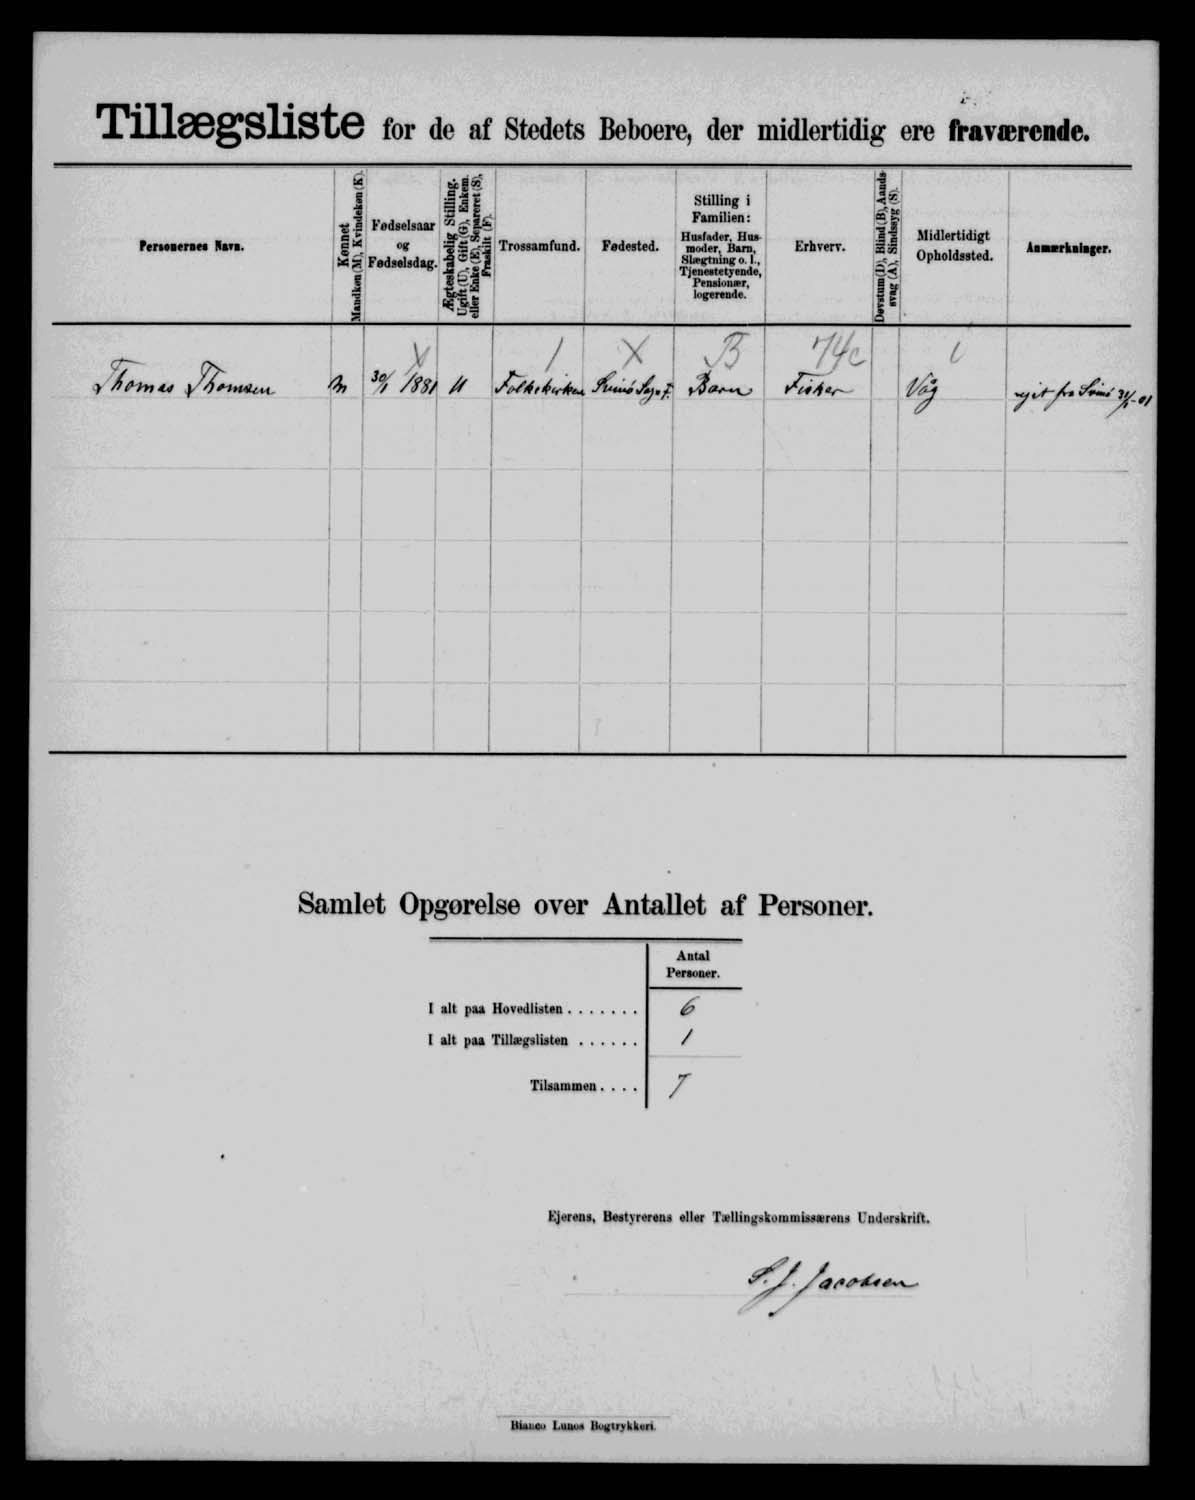 Tillægsliste for de af Stedets Beboere, der midlertidig ere fraværende.
Personernes Navn.
Kønnet
Mandkøn (M), Kvindekøn (K).
Fødselsaar
og
Fødselsdag.
Ægteskabelig Stilling.
Ugift (U), Gift (G), Enkem.
eller Enke (E), Separeret (S),
Fraskilt (F).
Trossamfund.
Fødested.
Stilling i
Familien:
Husfader, Hus-
moder, Barn,
Slægtning o. l.,
Tjenestetyende,
Pensionær,
logerende.
Erhverv.
Døvstum (D), Blind (B), Aands-
svag (A), Sindssyg (S).
Midlertidigt
Opholdssted.
Anmærkninger.
X 1 X B 74c 1
Thomas Thomsen M 30/1 1881 U Folkekirken Svinø Barn Fisker Våg rejst fra Svinø 31/1-01
Samlet Opgørelse over Antallet af Personer.
Antal
Personer.
I alt paa Hovedlisten . . . . . . . 6
I alt paa Tillægslisten . . . . . . 1
Tilsammen . . . . 7
Ejerens, Bestyrerens eller Tællingskommissærens Underskrift.
S. J. Jacobsen
Bianco Lunos Bogtrykkeri.